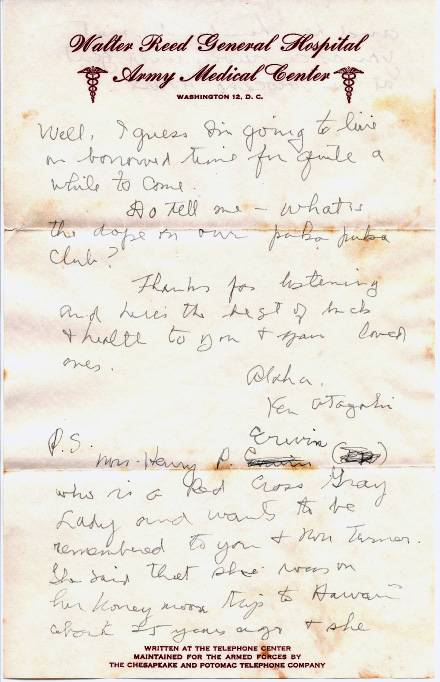 Walter Reed General Hospital
Army Medical Center
WASHINGTON 12, D. C.
Well, I guess I'm going to live
on borrowed time for quite a
while to come.
Do tell me – what is
the dope on our puka puka
Club?
Thanks for listening
and here's the best of luck
& health to you & your loved
ones.
Aloha,
Ken Otagaki
P.S.
Erwin
Mrs. Henry P.
who is a Red Cross Gray
Lady and wants to be
remembered to you & Mrs Turner.
She said that she was on
her honey moon trip to Hawaii
about 25 years ago & she
WRITTEN AT THE TELEPHONE CENTER
MAINTAINED FOR THE ARMED FORCES BY
THE CHESAPEAKE AND POTOMAC TELEPHONE COMPANY